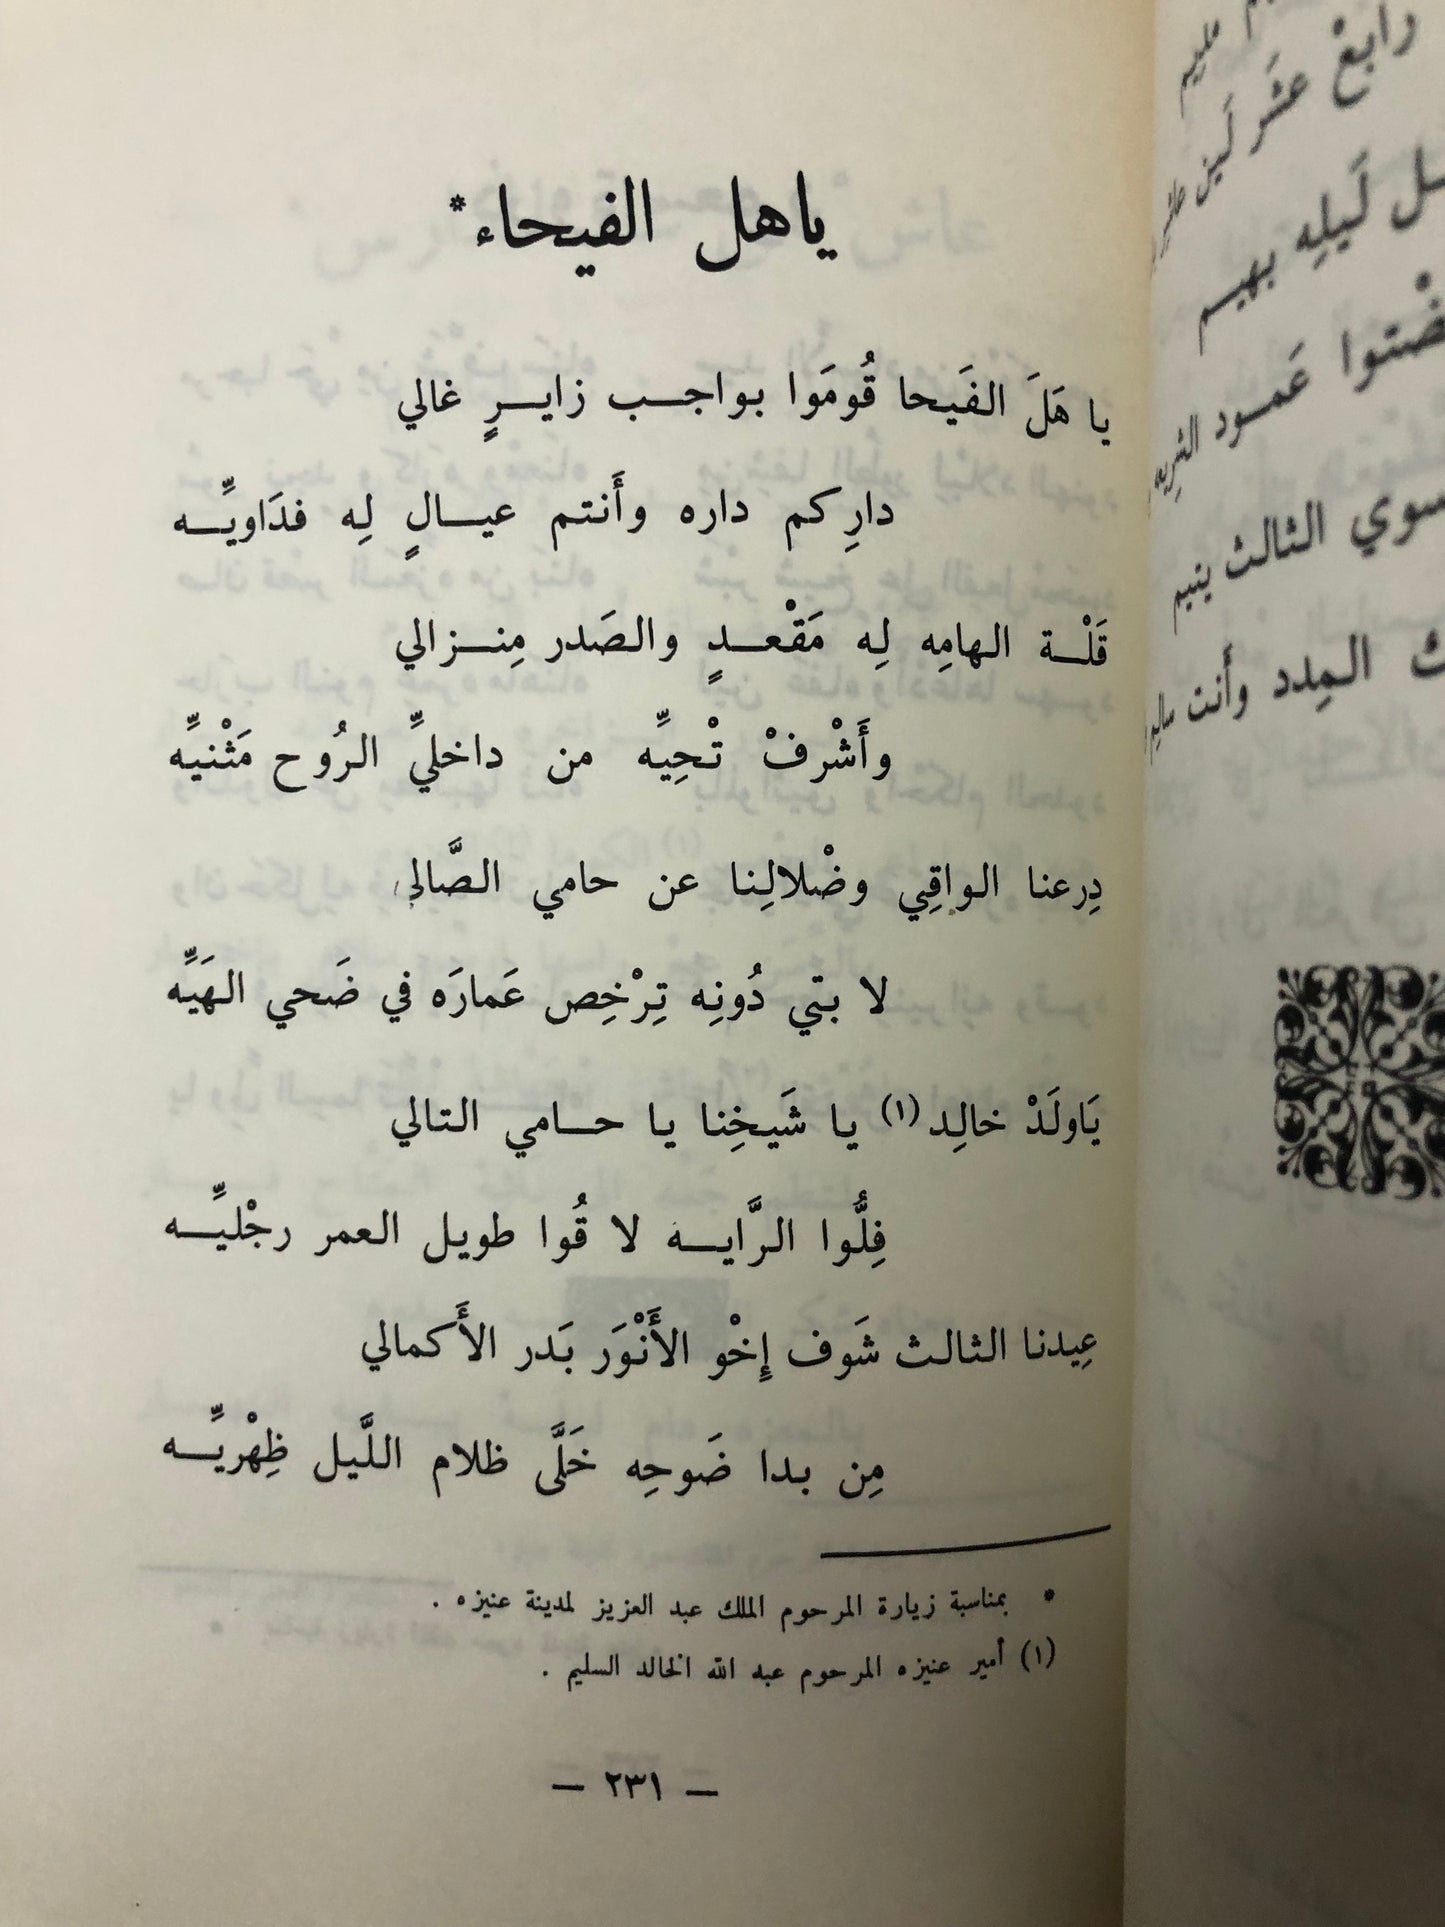 ياهل الفيحاء*
يا هَلَ الفَيحا قُومَوا بواجب زايرٍ غالي
دارِكم داره وأَنتم عيالٍ لِه فدَاويِّه
قَلْة الهامِه لِه مَقْعدٍ والصَدر مِنزالي
وأَشْرفْ تْحِيِّه من داخليِّ الرُوح مَثْنيِّه
دِرعنا الواقِي وضْلالِنا عن حامي الصَّالي
لا بتي دُونِه تِرْخِص عَمارَه في ضَحي الهَيِّه
يَاولَدْ خالِد (١) يا شَيخِنا يا حامي التالي
فِلُّوا الرَّايه لا قُوا طويل العمر رجْليِّه
عِيدنا الثالث شَوف إِخْو الأَنْوَر بَدر الأَكمالي
مِن بدا ضَوحِه خَلَّى ظلام اللَّيل ظِهْريِّه
* بمناسبة زيارة المرحوم الملك عبد العزيز لمدينة عنيزه .
(١) أمير عنيزه المرحوم عبد الله الخالد السليم .
— ٢٣١ —
رابعْ عشَر لَين
ـل لَيلِه بهيم
عَمود الثريه
الثالث ينيم
المِدد وأَنت سالِم